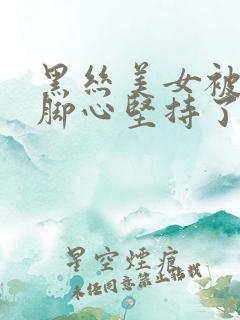 黑丝美女被
脚心堅持了
星空煙痕
未经同意禁止转载